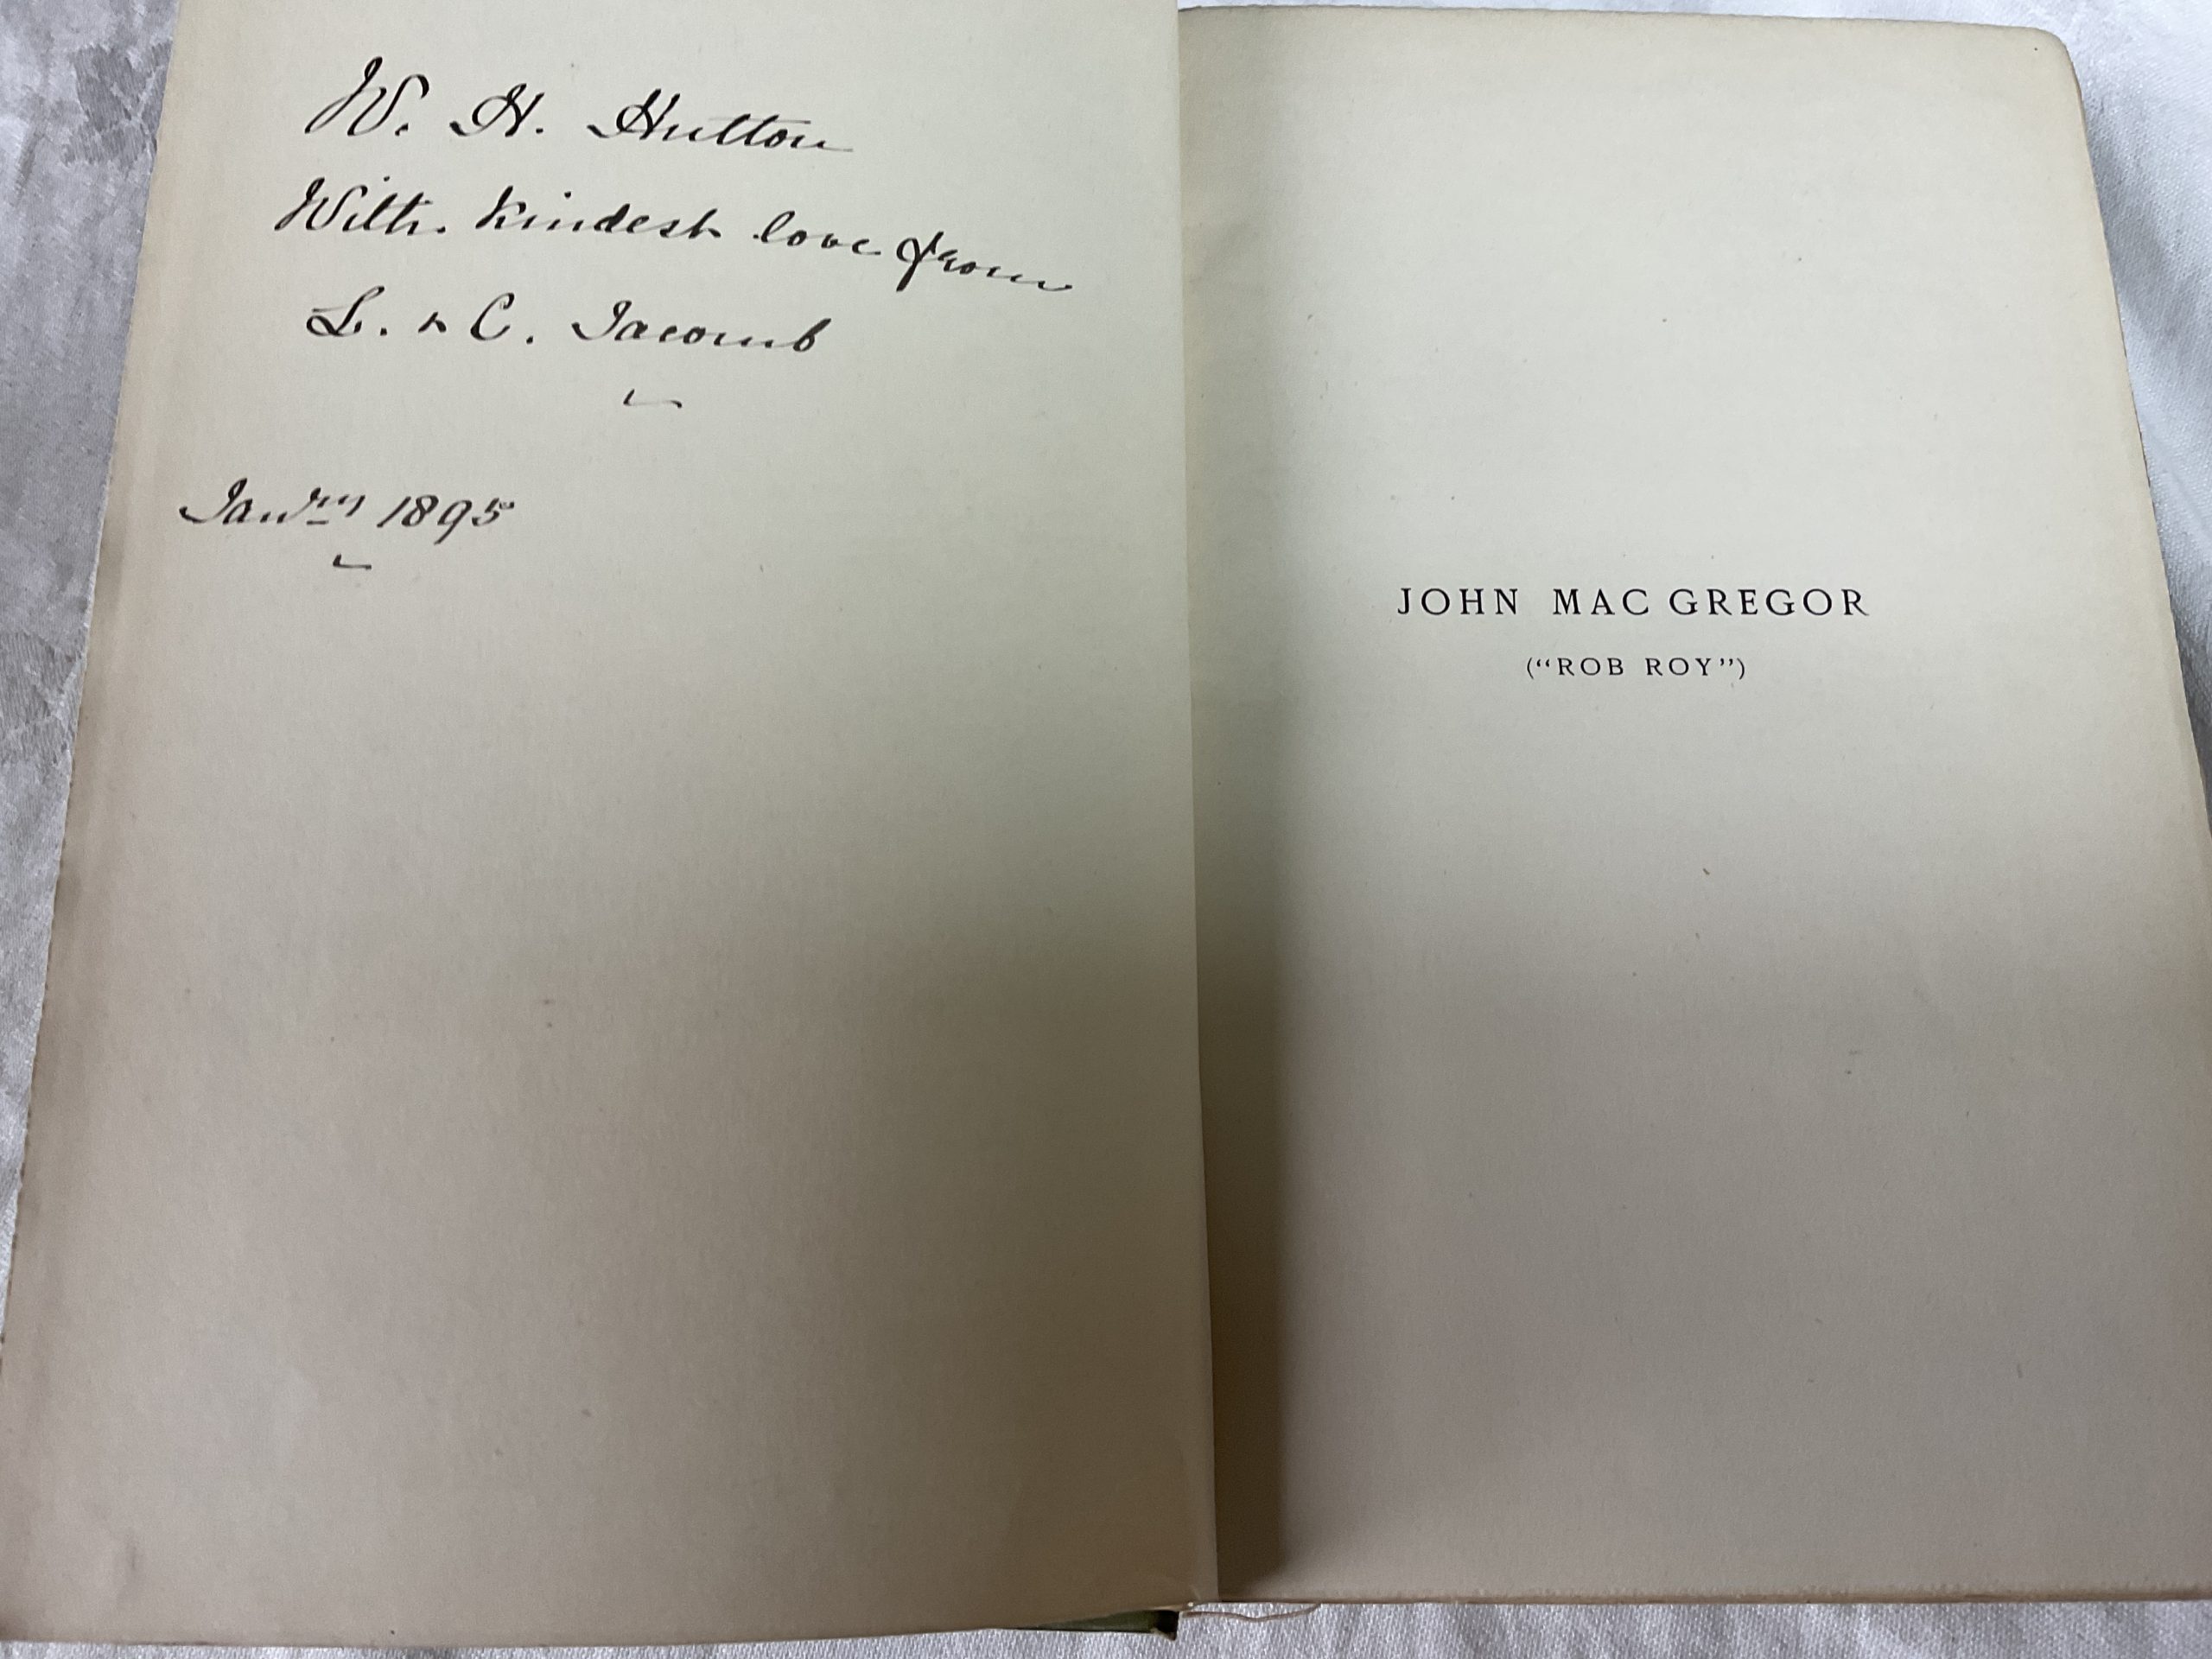 W. H. Hutton
With kindest love from
L. & C. Jacomb
Janry 1895
JOHN MAC GREGOR
("ROB ROY")